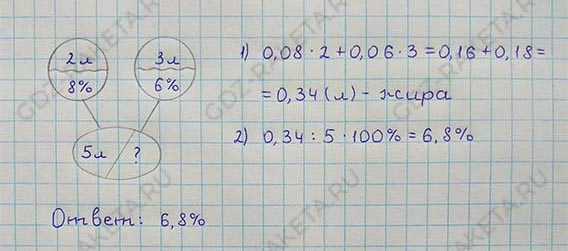 2л 3л
8% 6%
5л ?
1) 0,08 · 2 + 0,06 · 3 = 0,16 + 0,18 =
= 0,34 (л) - жира
2) 0,34 : 5 · 100% = 6,8%
Ответ: 6,8%
GDZ-RAKETA.RU
GDZ-RAKETA.RU
GDZ-RAKETA.RU
GDZ-RAKETA.RU